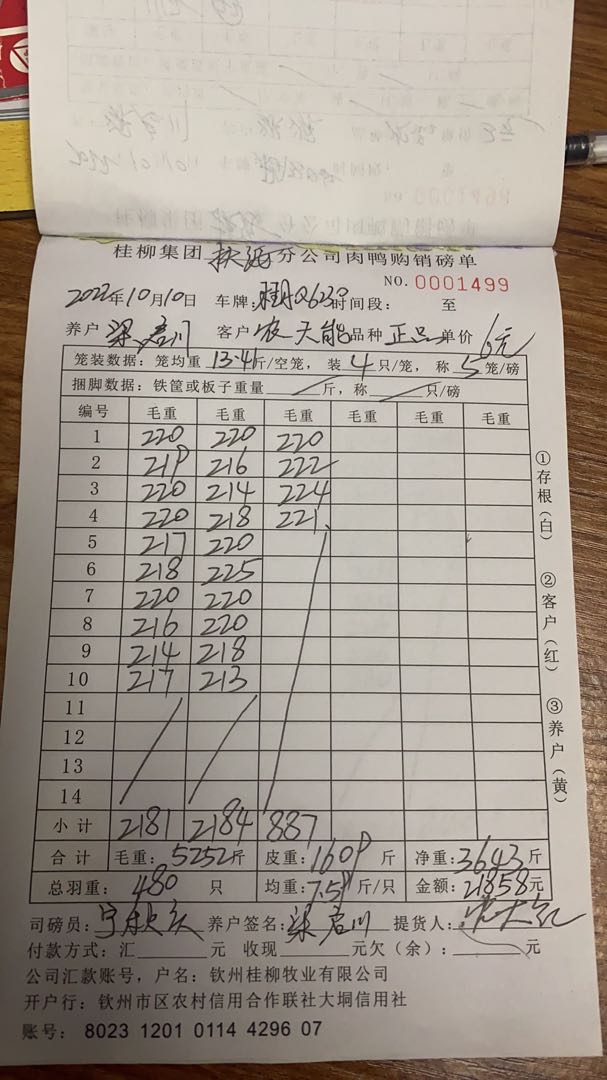 桂柳集团扶绥分公司肉鸭购销磅单
NO. 0001499
2022年10月10日 车牌: 时间段: 至
养户 梁启川 客户 农大能 品种 正品 单价 6元
笼装数据: 笼均重 13.4斤/空笼, 装 4 只/笼, 称 5 笼/磅
捆脚数据: 铁筐或板子重量 斤, 称 只/磅
编号 毛重 毛重 毛重 毛重 毛重 毛重
1 220 220 220
2 219 216 222
3 220 214 224
4 220 218 221
5 217 220
6 218 225
7 220 220
8 216 220
9 214 218
10 217 213
11
12
13
14
小计 2181 2184 887
合计 毛重: 5252斤 皮重: 1609 斤 净重: 3643斤
总羽重: 480 只 均重: 7.59斤/只 金额: 21858元
司磅员: 养户签名: 梁启川 提货人:
付款方式: 汇 元 收现 元欠(余): 元
公司汇款账号, 户名: 钦州桂柳牧业有限公司
开户行: 钦州市区农村信用合作联社大垌信用社
账号: 8023 1201 0114 4296 07
①存根(白)
②客户(红)
③养户(黄)